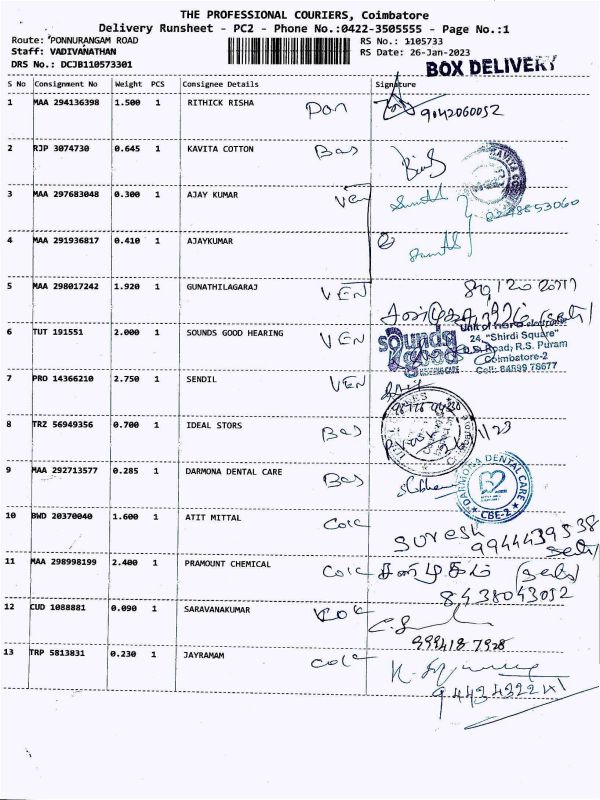 THE PROFESSIONAL COURIERS, Coimbatore
Delivery Runsheet - PC2 - Phone No.:0422-3505555 - Page No.:1
Route: PONNURANGAM ROAD
RS No.: 1105733
Staff: VADIVANATHAN
RS Date: 26-Jan-2023
DRS No.: DCJB110573301
BOX DELIVERY
S No Consignment No Weight PCS Consignee Details Signature
1 MAA 294136398 1.500 1 RITHICK RISHA Pon 9042060052
2 RJP 3074730 0.645 1 KAVITA COTTON Bas
3 MAA 297683048 0.300 1 AJAY KUMAR Ven
4 MAA 291936817 0.410 1 AJAYKUMAR
5 MAA 298017242 1.920 1 GUNATHILAGARAJ VEN
6 TUT 191551 2.000 1 SOUNDS GOOD HEARING VEN
Sounds good
HEARING CARE
24, "Shirdi Square"
D.B. Road, R.S. Puram
Coimbatore-2
7 PRO 14366210 2.750 1 SENDIL VEN
8 TRZ 56949356 0.700 1 IDEAL STORS Bas
9 MAA 292713577 0.285 1 DARMONA DENTAL CARE Bas
DARMONA DENTAL CARE
CBE-2
10 BWD 20370040 1.600 1 ATIT MITTAL Coic
Suresh
9944439538
11 MAA 298998199 2.400 1 PRAMOUNT CHEMICAL Coic சண்முகம்
8438043052
12 CUD 1088881 0.090 1 SARAVANAKUMAR
13 TRP 5813831 0.230 1 JAYRAMAM Coic